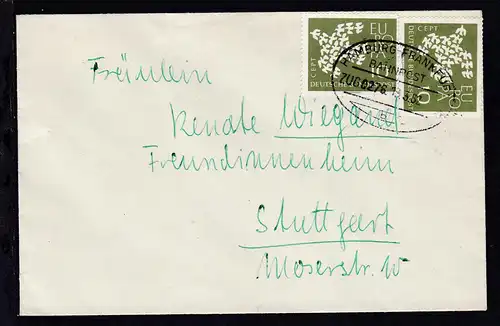 EUROPA
CEPT
DEUTSCHE
EUROPA
CEPT
10
HAMBURG-FRANKFURT
BAHNPOST
ZUG
Fräulein
Renate Wiegand
Freundinnenheim
Stuttgart
Moserstr. 10